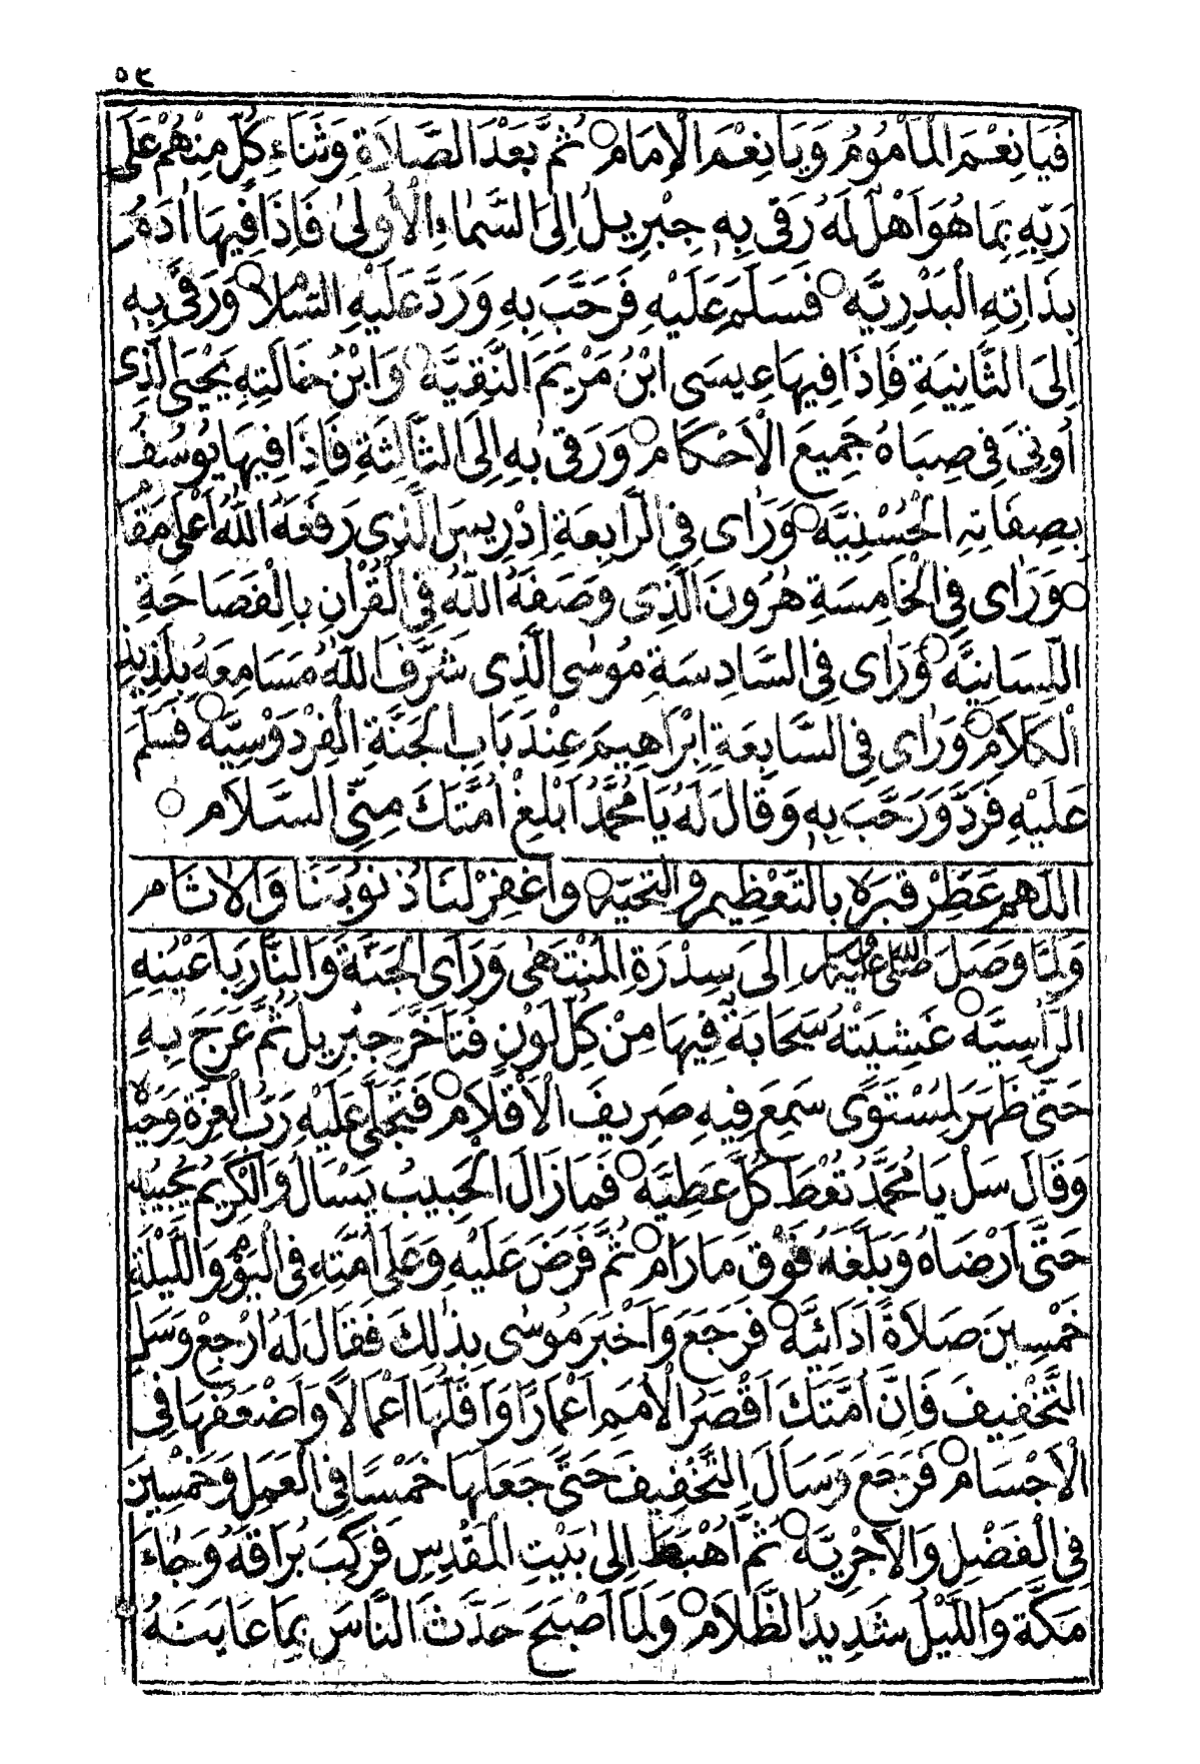 ٥٤
فَيَا نِعْمَ الْمَأْمُومُ وَيَا نِعْمَ الْإِمَامُ ۝ ثُمَّ بَعْدَ الصَّلَاةِ وَثَنَاءِ كُلٍّ مِنْهُمْ عَلَى
رَبِّهِ بِمَا هُوَ اَهْلٌ لَهُ رَقَى بِهِ جِبْرِيلُ اِلَى السَّمَاءِ الْأُولَى فَاِذَا فِيهَا اٰدَمُ
بِذَاتِهِ الْبَدْرِيَّه ۝ فَسَلَّمَ عَلَيْهِ فَرَحَّبَ بِهِ وَرَدَّ عَلَيْهِ السَّلَام ۝ وَرَقَى بِهِ
اِلَى الثَّانِيَةِ فَاِذَا فِيهَا عِيسَى ابْنُ مَرْيَمَ النَّقِيَّه ۝ وَابْنُ خَالَتِهِ يَحْيَى الَّذِى
اُوتِىَ فِى صِبَاهُ جَمِيعَ الْاَحْكَام ۝ وَرَقَى بِهِ اِلَى الثَّالِثَةِ فَاِذَا فِيهَا يُوسُفُ
بِصِفَاتِهِ الْحُسْنِيَّه ۝ وَرَاٰى فِى الرَّابِعَةِ اِدْرِيسَ الَّذِى رَفَعَهُ اللّٰهُ اَعْلَى مَقَام
۝ وَرَاٰى فِى الْخَامِسَةِ هٰرُونَ الَّذِى وَصَفَهُ اللّٰهُ فِى الْقُرْاٰنِ بِالْفَصَاحَةِ
اللِّسَانِيَّه ۝ وَرَاٰى فِى السَّادِسَةِ مُوسٰى الَّذِى شَرَّفَ اللّٰهُ مَسَامِعَهُ بِلَذِيذِ
الْكَلَام ۝ وَرَاٰى فِى السَّابِعَةِ اِبْرَاهِيمَ عِنْدَ بَابِ الْجَنَّةِ الْفِرْدَوْسِيَّه ۝ فَسَلَّمَ
عَلَيْهِ فَرَدَّ وَرَحَّبَ بِهِ وَقَالَ لَهُ يَا مُحَمَّدُ اَبْلِغْ اُمَّتَكَ مِنِّى السَّلَام ۝
اللّٰهُمَّ عَطِّرْ قَبْرَهُ بِالتَّعْظِيمِ وَالتَّحِيَّه ۝ وَاغْفِرْ لَنَا ذُنُوبَنَا وَالْاٰثَام
وَلَمَّا وَصَلَ صَلَّى اللّٰهُ عَلَيْهِ وَسَلَّمَ اِلَى سِدْرَةِ الْمُنْتَهٰى وَرَاَى الْجَنَّةَ وَالنَّارَ بِاَعْيُنِهِ
الرَّأْسِيَّه ۝ غَشِيَتْهُ سَحَابَةٌ فِيهَا مِنْ كُلِّ لَوْنٍ فَتَاَخَّرَ جِبْرِيلُ ثُمَّ عَرَجَ بِهِ
حَتَّى ظَهَرَ لِمُسْتَوًى سَمِعَ فِيهِ صَرِيفَ الْاَقْلَام ۝ فَتَجَلَّى عَلَيْهِ رَبُّ الْعِزَّةِ وَحَيَّاهُ
وَقَالَ سَلْ يَا مُحَمَّدُ تُعْطَ كُلَّ عَطِيَّه ۝ فَمَا زَالَ الْحَبِيبُ يَسْاَلُ وَالْكَرِيمُ يُجِيبُهُ
حَتَّى اَرْضَاهُ وَبَلَّغَهُ فَوْقَ مَا رَام ۝ ثُمَّ فَرَضَ عَلَيْهِ وَعَلَى اُمَّتِهِ فِى الْيَوْمِ وَاللَّيْلَةِ
خَمْسِينَ صَلَاةً اَدَائِيَّه ۝ فَرَجَعَ وَاَخْبَرَ مُوسٰى بِذٰلِكَ فَقَالَ لَهُ ارْجِعْ وَسَلِ
التَّخْفِيفَ فَاِنَّ اُمَّتَكَ اَقْصَرُ الْاُمَمِ اَعْمَارًا وَاَقَلُّهَا اَعْمَالًا وَاَضْعَفُهَا فِى
الْاَجْسَام ۝ فَرَجَعَ وَسَاَلَ التَّخْفِيفَ حَتَّى جَعَلَهَا خَمْسًا فِى الْعَمَلِ وَخَمْسِينَ
فِى الْفَضْلِ وَالْاَجْرِيَّه ۝ ثُمَّ اُهْبِطَ اِلَى بَيْتِ الْمَقْدِسِ فَرَكِبَ بُرَاقَهُ وَجَاءَ
مَكَّةَ وَاللَّيْلُ شَدِيدُ الظَّلَام ۝ وَلَمَّا اَصْبَحَ حَدَّثَ النَّاسَ بِمَا عَايَنَهُ